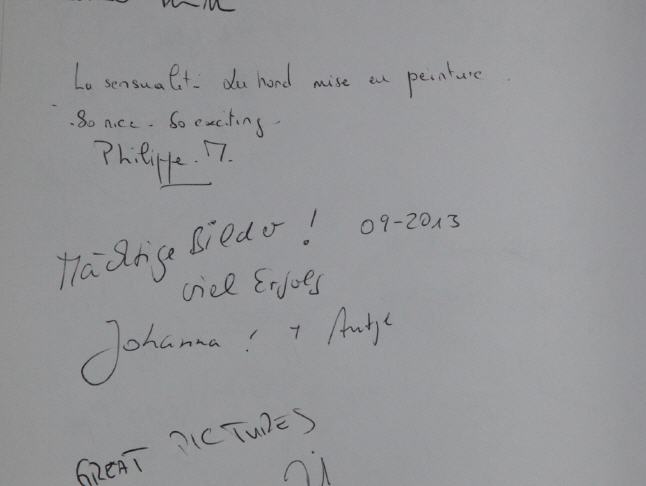 La sensualité du nord mise en peinture.
So nice - So exciting -
Philippe. M.
Mächtige Bilder ! 09-2013
viel Erfolg
Johanna ! + Antje
GREAT PICTURES